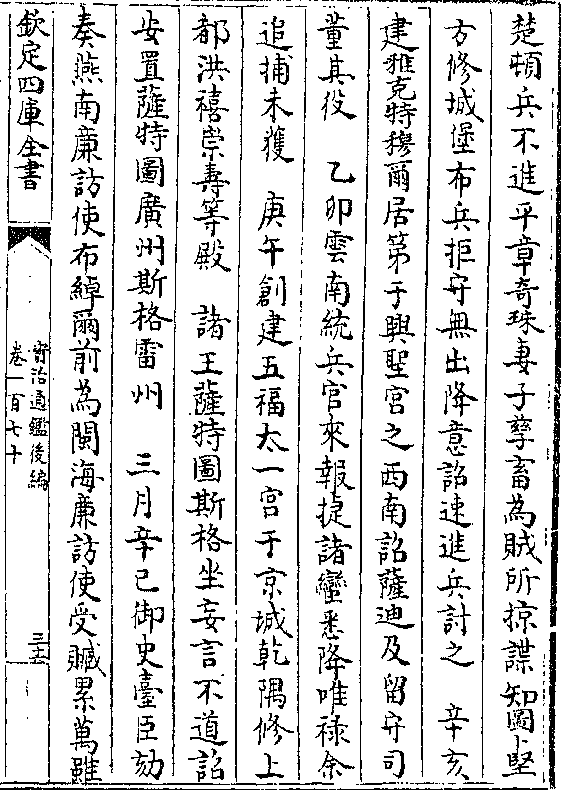 楚頓兵不進平章奇珠妻子孳畜為賊所掠諜知圖卜堅
方修城堡布兵拒守無出降意詔速進兵討之　辛亥
建雅克特穆爾居第于興聖宮之西南詔薩迪及留守司
董其役　乙卯雲南統兵官來報捷諸蠻悉降唯祿余
追捕未獲　庚午創建五福太一宮于京城乾隅修上
都洪禧崇壽等殿　諸王薩特圖斯格坐妄言不道詔
安置薩特圖廣州斯格雷州　三月辛巳御史臺臣劾
奏燕南廉訪使布綽爾前為閩海廉訪使受贓累萬雖
欽定四庫全書
資治通鑑後編
卷一百七十
三六